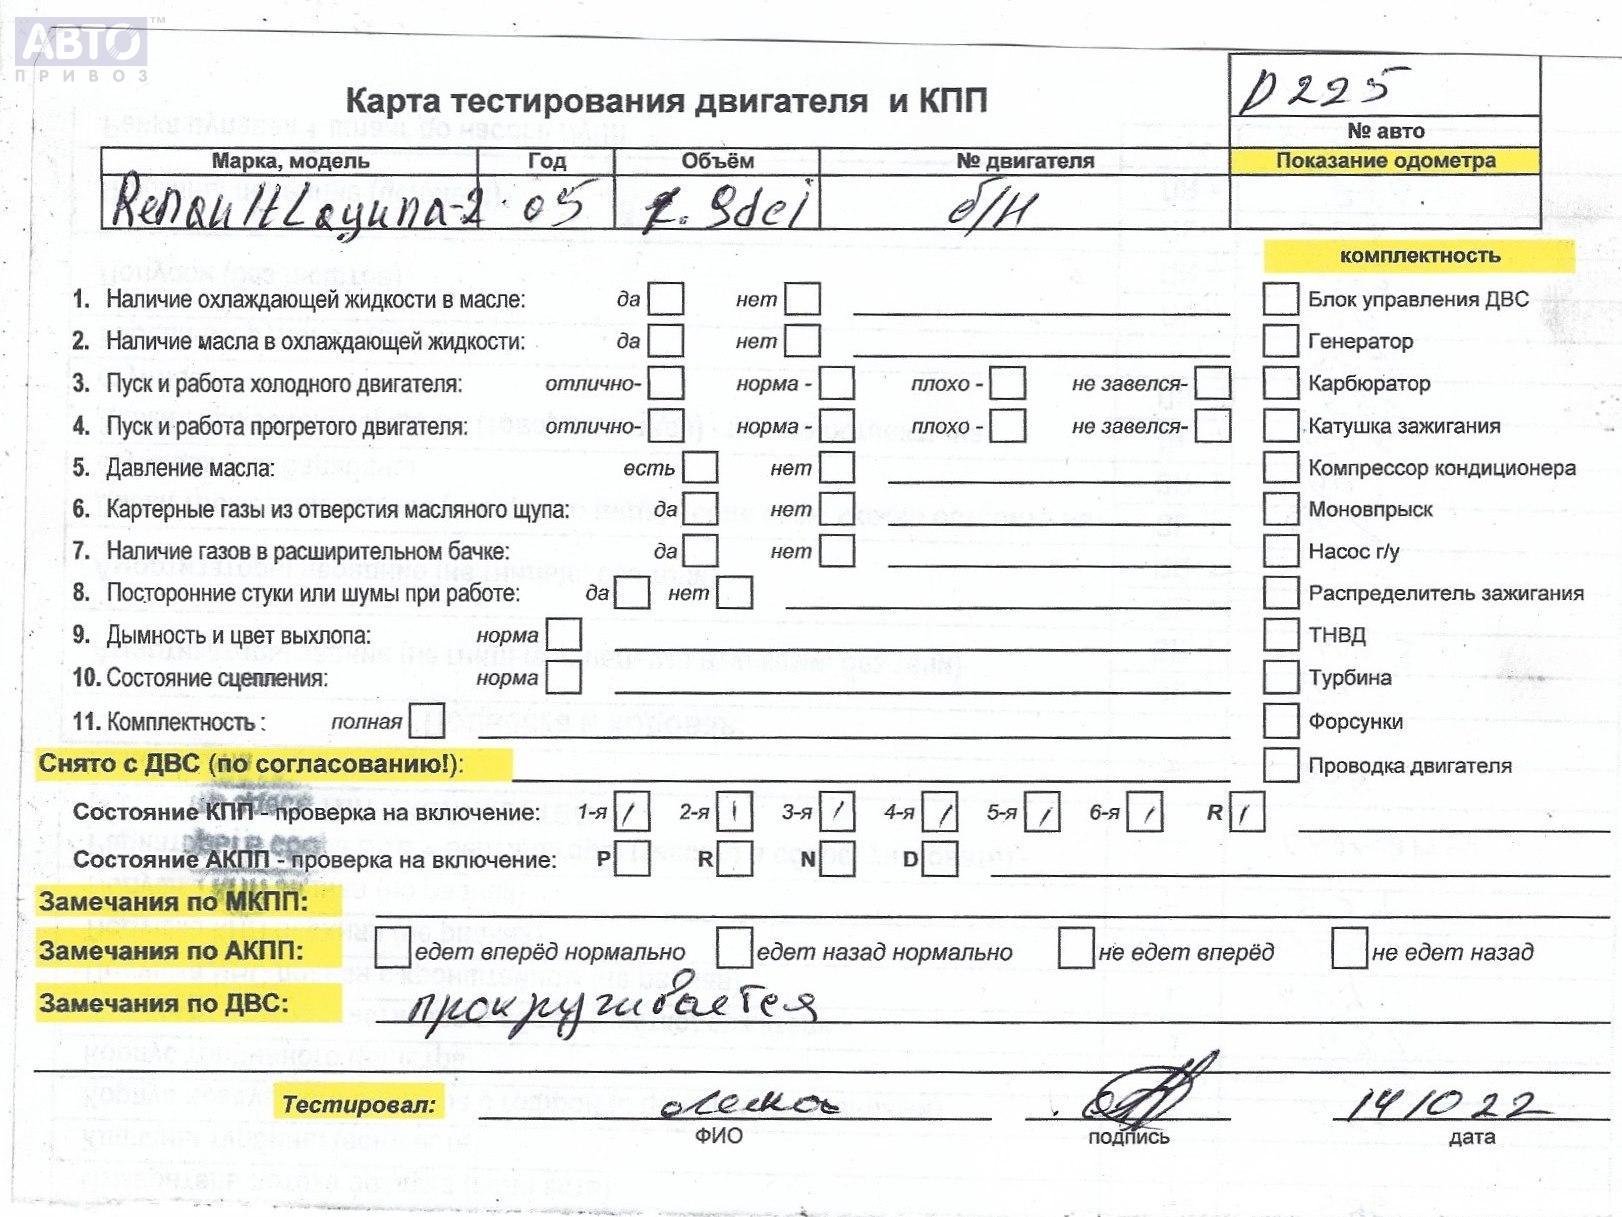 АВТО™
ПРИВОЗ
D225
Карта тестирования двигателя и КПП
№ авто
Марка, модель Год Объём № двигателя Показание одометра
Renault Laguna-2 05 1.9dci б/н
комплектность
1. Наличие охлаждающей жидкости в масле: да нет Блок управления ДВС
2. Наличие масла в охлаждающей жидкости: да нет Генератор
3. Пуск и работа холодного двигателя: отлично- норма - плохо - не завелся- Карбюратор
4. Пуск и работа прогретого двигателя: отлично- норма - плохо - не завелся- Катушка зажигания
5. Давление масла: есть нет Компрессор кондиционера
6. Картерные газы из отверстия масляного щупа: да нет Моновпрыск
7. Наличие газов в расширительном бачке: да нет Насос г/у
8. Посторонние стуки или шумы при работе: да нет Распределитель зажигания
9. Дымность и цвет выхлопа: норма ТНВД
10. Состояние сцепления: норма Турбина
11. Комплектность : полная Форсунки
Снято с ДВС (по согласованию!): Проводка двигателя
Состояние КПП - проверка на включение: 1-я / 2-я / 3-я / 4-я / 5-я / 6-я / R /
Состояние АКПП - проверка на включение: P R N D
Замечания по МКПП:
Замечания по АКПП: едет вперёд нормально едет назад нормально не едет вперёд не едет назад
Замечания по ДВС: прокручивается
Тестировал: 14 10 22
ФИО подпись дата